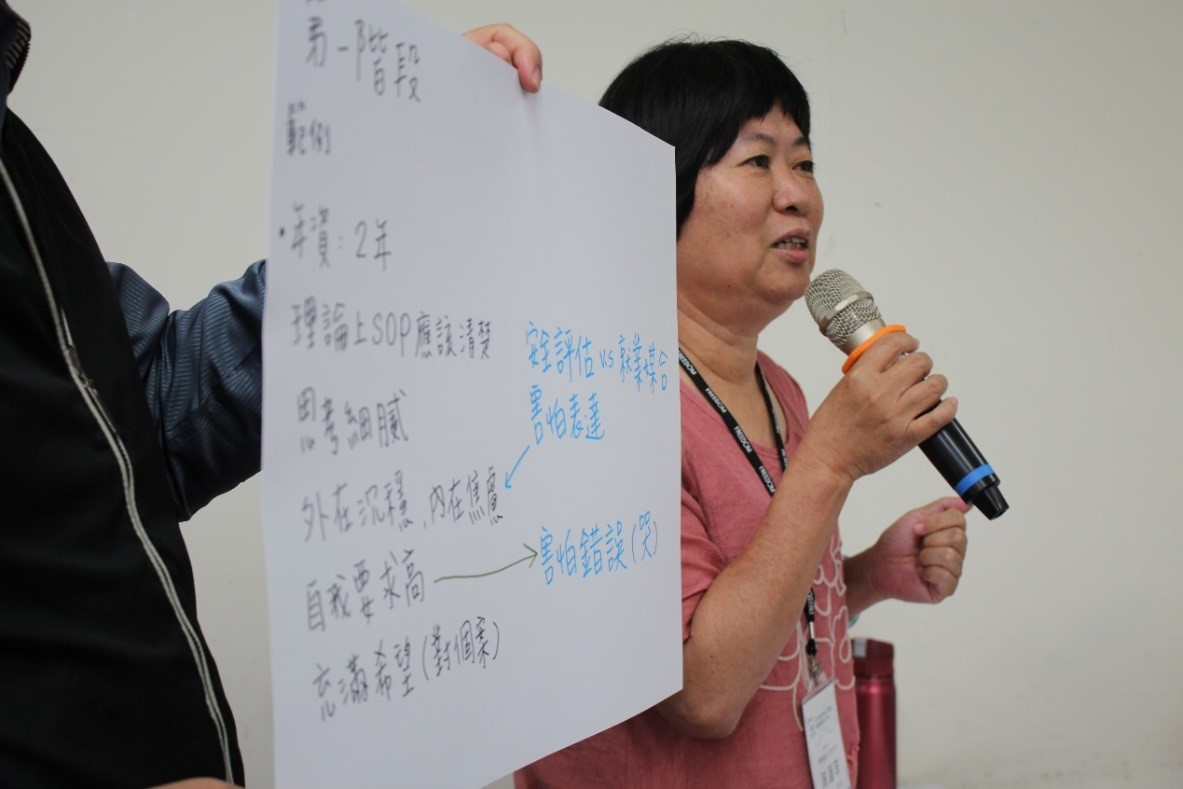 第一階段
範例
•年資：2年
理論上SOP應該清楚
思考細膩
外在沉穩、內在焦慮
自我要求高
充滿希望(對個案)
安全評估 vs 就業媒合
害怕表達
害怕錯誤(哭)
FREEDOM
FREEDOM
FREEDOM
FREEDOM